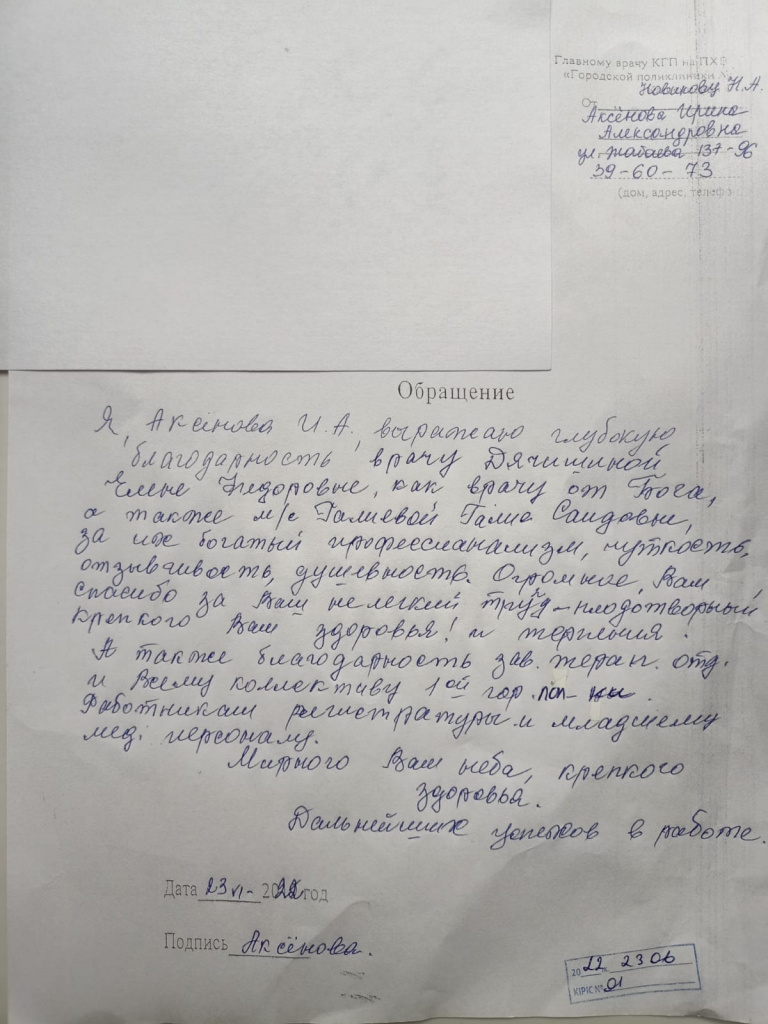 Главному врачу КГП на ПХВ
«Городской поликлиники №
Новикову Н.А.
От
Аксёнова Ирина
Александровна
ул. 137-96
39-60-73
(дом, адрес, телефо
Обращение
Я, Аксёнова И.А., выражаю глубокую
благодарность врачу Дячишиной
Елене Федоровне, как врачу от Бога,
а также м/с Галиевой Галие Саидовне,
за их богатый профессианализм, чуткость,
отзывчивость, душевность. Огромное, Вам,
спасибо за Ваш нелегкий труд-плодотворный
крепкого Вам здоровья! и терпения.
А также благодарность зав. терап. отд.
и Всему коллективу 1ой гор. пол-ки.
Работникам регистратуры и младшему
мед. персоналу.
Мирного Вам неба, крепкого
здоровья.
Дальнейших успехов в работе.
Дата 23 VI- 2022 год
Подпись Аксёнова.
2022 ж. 23 06
КІРІС № 01